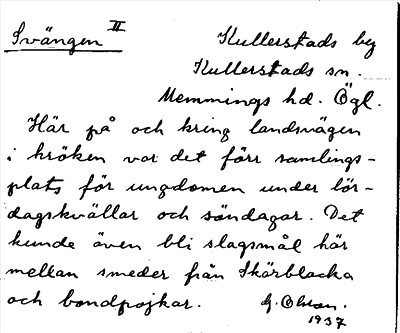 Svängen II
Kullerstads by
Kullerstads sn.
Memmings hd. Ögl.
Här på och kring landsvägen
i kröken var det förr samlings-
plats för ungdomen under lör-
dagskvällar och söndagar. Det
kunde även bli slagsmål här
mellan smeder från Skärblacka
och bondpojkar.
G. Olsson.
1937